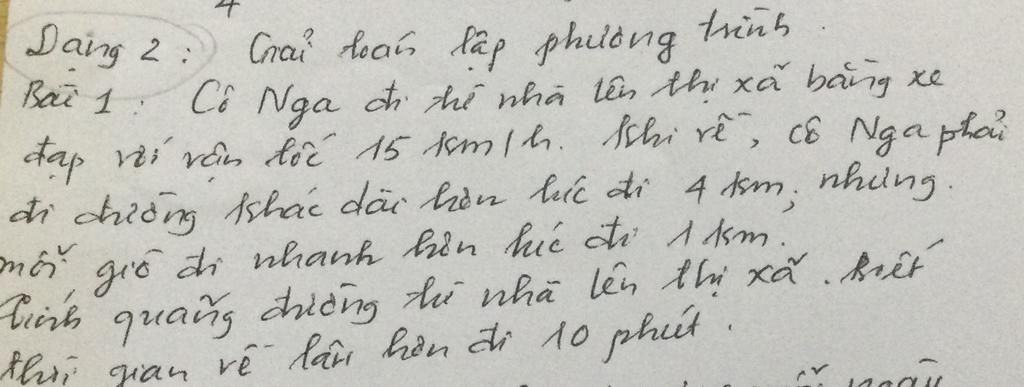 4
Dạng 2 : Giải toán lập phương trình.
Bài 1 : Cô Nga đi từ nhà lên thị xã bằng xe
đạp với vận tốc 15 km/h. Khi về, cô Nga phải
đi đường khác dài hơn lúc đi 4 km, nhưng
mỗi giờ đi nhanh hơn lúc đi 1 km.
Tính quãng đường từ nhà lên thị xã. Biết
thời gian về lâu hơn đi 10 phút.